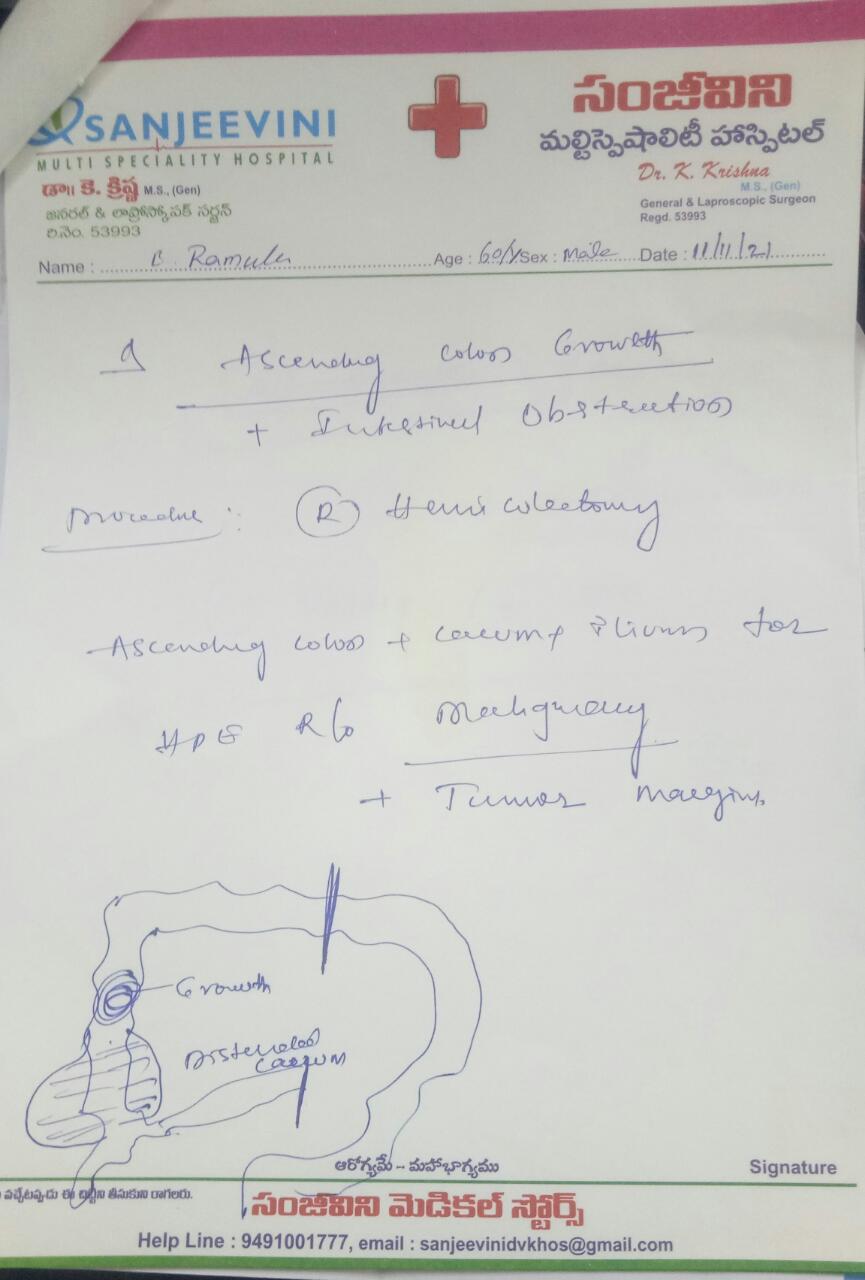 SANJEEVINI
MULTI SPECIALITY HOSPITAL
డా॥ కె. క్రిష్ణ M.S., (Gen)
జనరల్ & లాప్రోస్కోపిక్ సర్జన్
రి.నెం. 53993
సంజీవిని
మల్టిస్పెషాలిటీ హాస్పిటల్
Dr. K. Krishna
M.S., (Gen)
General & Laproscopic Surgeon
Regd. 53993
Name : B Ramulu Age : 60/Y Sex : Male Date : 11/11/21
Ascending colon Growth
+ Intestinal Obstruction
Procedure : (R) Hemicolectomy
Ascending colon + caecum + ilium for
HPE R/o Malignancy
+ Tumor margins
Growth
Distended
Caecum
ఆరోగ్యమే – మహాభాగ్యము
Signature
వచ్చేటప్పుడు ఈ చిట్టీని తీసుకుని రాగలరు.
సంజీవిని మెడికల్ స్టోర్స్
Help Line : 9491001777, email : sanjeevinidvkhos@gmail.com